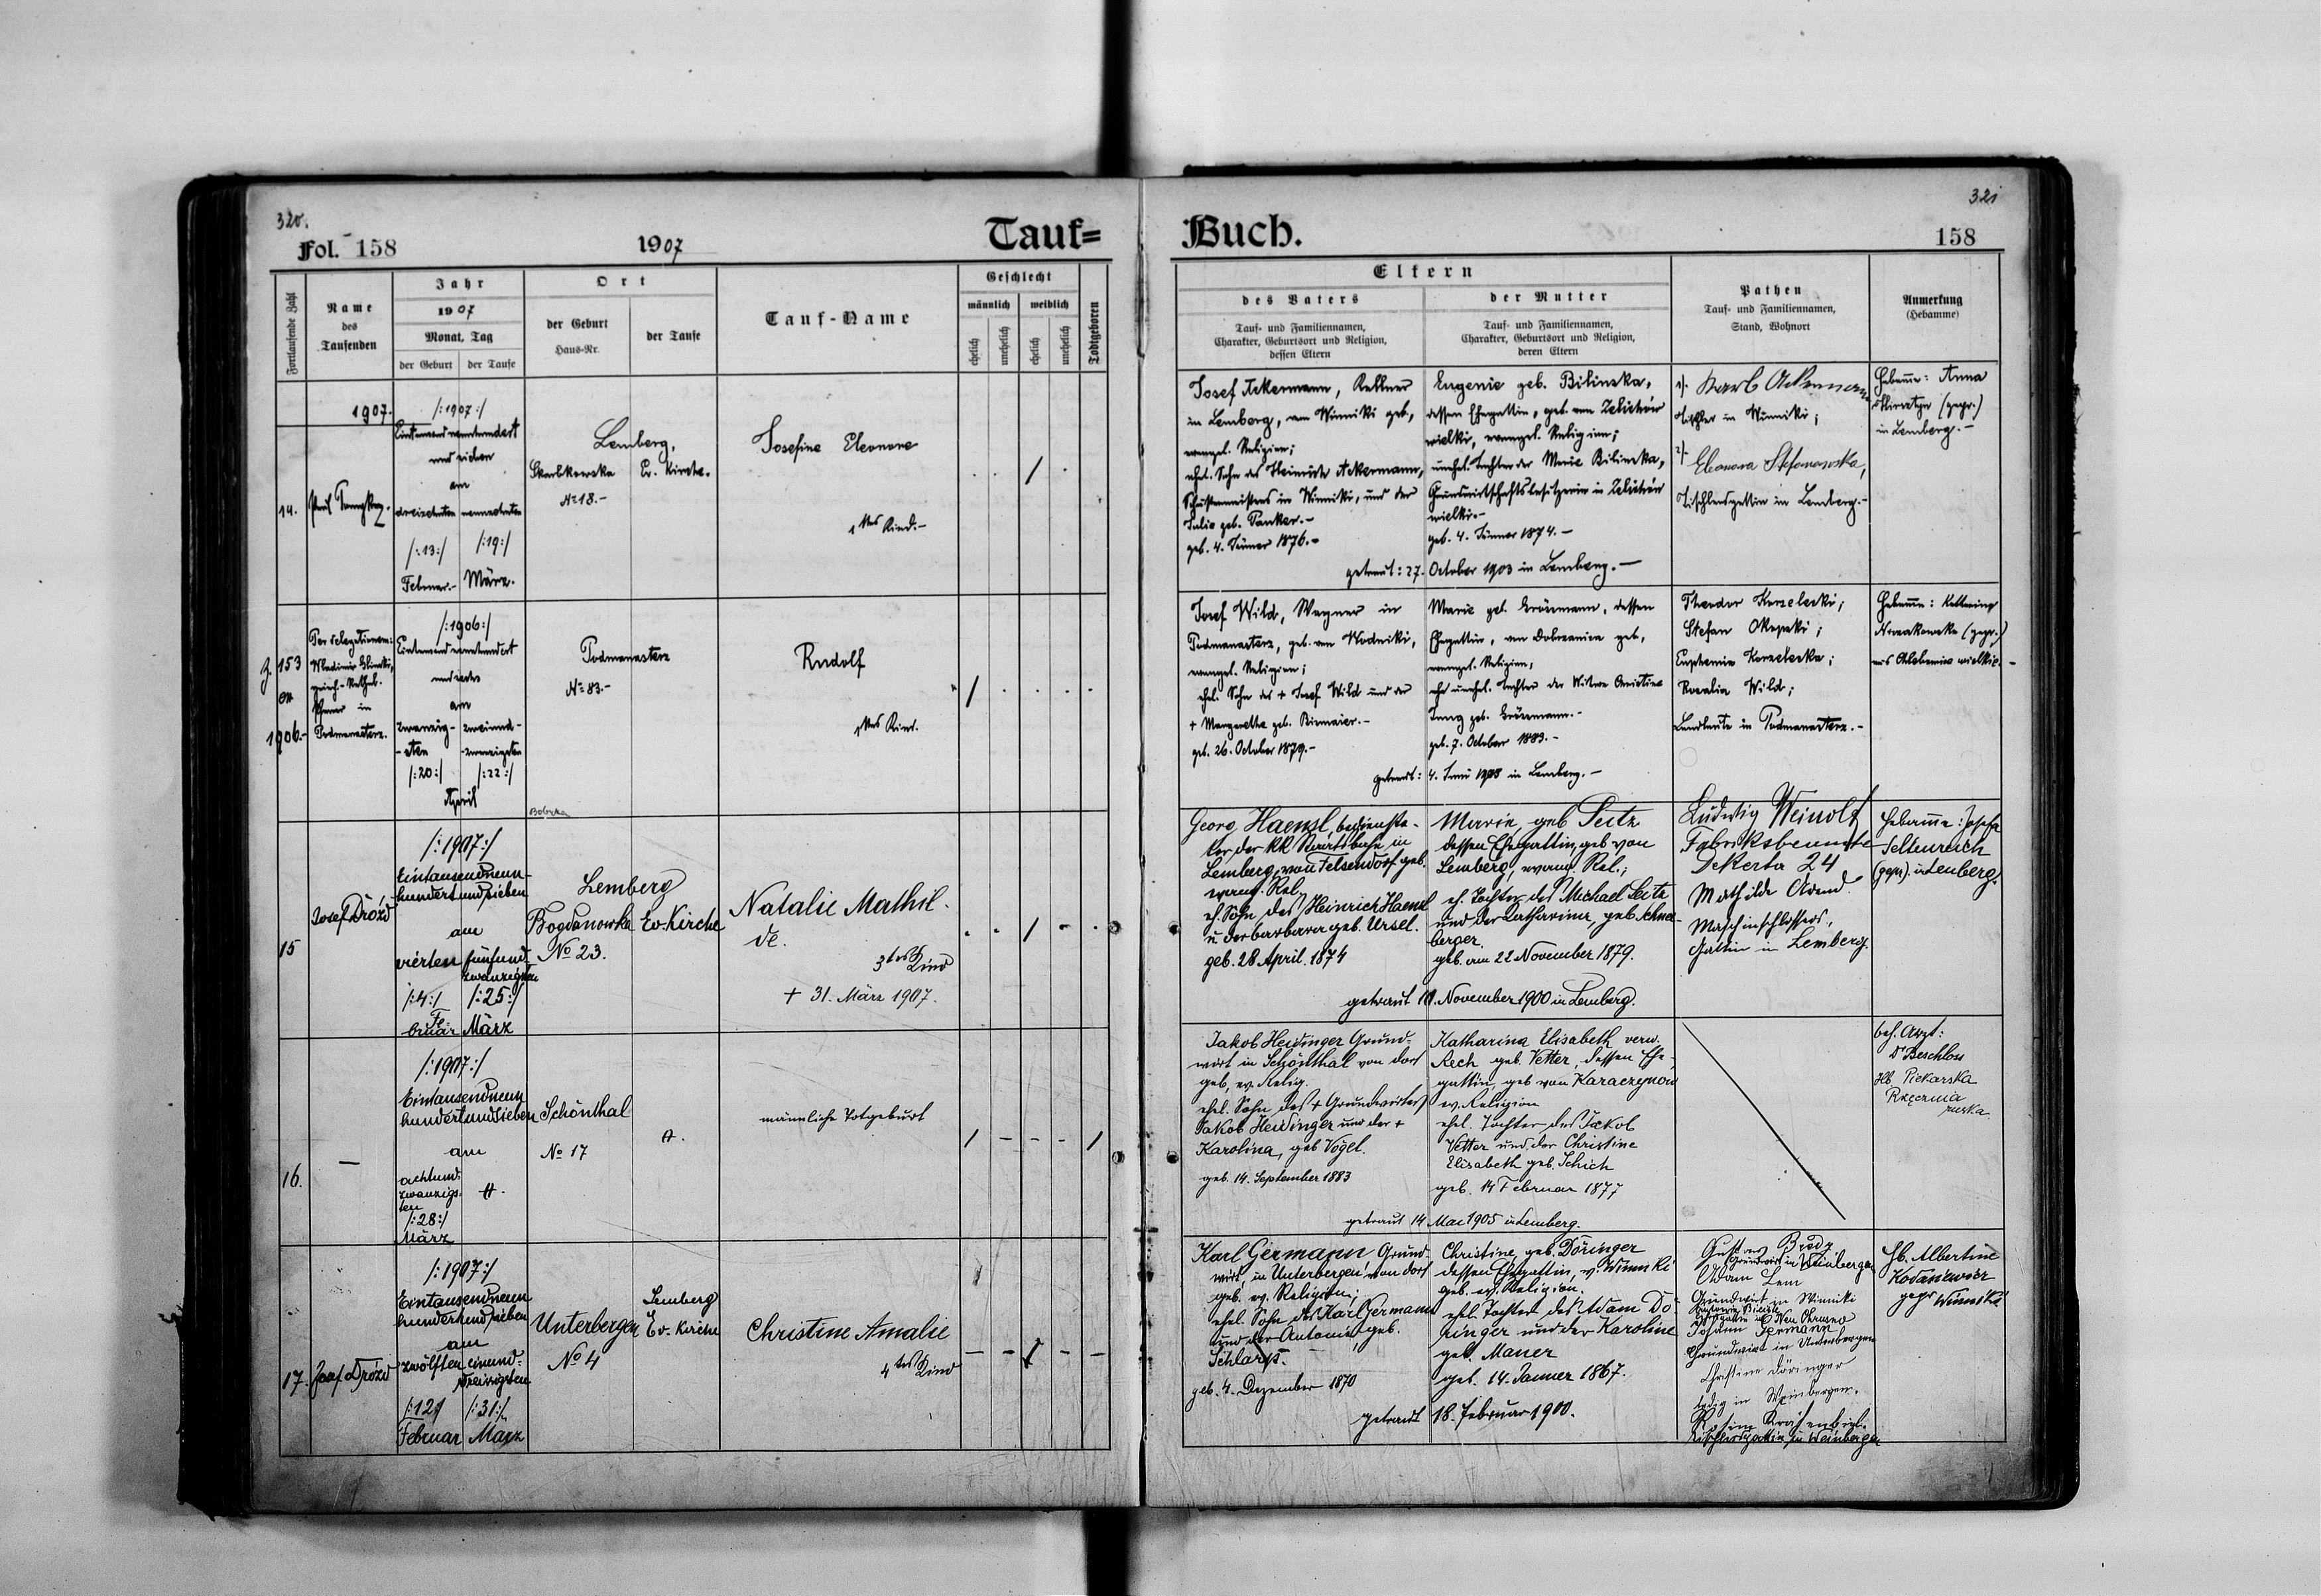 320.
Fol. 158
1907
Tauf=
Fortlaufende Zahl
Name
des
Taufenden
Jahr
1907
Monat, Tag
der Geburt
der Taufe
Ort
der Geburt
Haus-Nr.
der Taufe
Tauf-Name
Geschlecht
männlich
weiblich
ehelich
unehelich
ehelich
unehelich
Todtgeboren
1907.
14.
/:1907:/
Eintausendneunhundert
und sieben
am
dreizehnten
neunzehnten
/:13:/
/:19:/
Februar.-
März.
Lemberg,
Skarbkowska
Ev. Kirche.
No 18.-
Josefine Eleonore
1tes Kind.-
Z. 153
ex
1906.-
Wladimir
in
Podmanasterz.
/:1906:/
Eintausendneunhundert
und sechs
am
zwanzig-
-sten
zweiund-
-zwanzigsten
/:20:/
/:22:/
April
Podmanasterz
No 83.-
Rudolf
1tes Kind.
Bobrka
15
Josef Dróżd
/:1907:/
Eintausendneun-
hundert und sieben
am
vierten
fünfund-
zwanzigsten
/:4:/
/:25:/
Fe-
bruar
März
Lemberg
Bogdanowka
Ev. Kirche
No 23.
Natalie Mathil-
de.
3tes Kind
+ 31. März 1907.
16.
—
/:1907:/
Eintausendneun
hundertundsieben
am
achtund-
zwanzigs-
ten
/:28:/
März
Schönthal
No 17
männliche Totgeburt
17.
Josef Dróżd
/:1907:/
Eintausendneun
hundertundsieben
am
zwölften
einund-
dreissigsten
/:12:/
/:31:/
Februar
März
Unterbergen
No 4
Lemberg
Ev. Kirche
Christine Amalie
4tes Kind
321
Buch.
158
Eltern
des Vaters
Tauf- und Familiennamen,
Charakter, Geburtsort und Religion,
dessen Eltern
der Mutter
Tauf- und Familiennamen,
Charakter, Geburtsort und Religion,
deren Eltern
Pathen
Tauf- und Familiennamen,
Stand, Wohnort
Anmerkung
(Hebamme)
Josef Ackermann, Kellner
in Lemberg, von Winniki geb.,
evangel. Religion;
ehel. Sohn des Heinrich Ackermann,
Schustermeisters in Winniki, und der
Julie geb. Panker.-
geb. 4. Jänner 1876.-
Eugenie geb. Bilinska,
dessen Ehegattin, geb. von
wielki, evangel. Religion;
unehel. Tochter der Marie Bilinska,
Grundwirtschaftsbesitzerin in
wielki.-
geb. 4. Jänner 1874.-
getraut: 27. October 1903 in Lemberg.-
1). Ackermann
Tischler in Winniki;
2). Eleonora Stefanowska,
Tischlersgattin in Lemberg.-
Hebamme: Anna
(gepr.)
in Lemberg.-
Josef Wild, Wagner in
Podmanasterz, geb. von Wodniki,
evangel. Religion;
ehel. Sohn des + Josef Wild und der
+ Margaretha geb. Birmaier.-
geb. 26. October 1879.-
Marie geb. Grössmann, dessen
Ehegattin, von Dobrzanica geb.,
evangel. Religion;
unehel. Tochter der Witwe Christine
Jung geb. Grössmann.-
geb. 7. October 1883.-
getraut: 4. Juni 1905 in Lemberg.-
Theodor Korzelecki;
Stefan
Euphemia
Rosalia Wild;
Landleute in Podmanasterz.-
Hebamme: Katharina
Nowakowska (gepr.)
aus Chlebowice wielkie.-
Georg Haensl, bedienste-
ter der kk Staatsbahn in
Lemberg, von Felsendorf geb.
evang. Rel.
eh. Sohn des Heinrich Haensl
u der Barbara geb. Ursel.
geb. 28 April. 1874
Marie, geb Seitz
dessen Ehegattin, geb von
Lemberg, evang. Rel.;
eh. Tochter des Michael Seitz
und der Katharina, geb. Schnee-
berger.
geb. am 22 November 1879.
getraut 11. November 1900 in Lemberg.
Ludwig Weinolf
Fabriksbeamte
Dekerta 24
Mathilde
Maschinschlossers,
Gattin in Lemberg.
Hebamme: Josefa
Seltenreich
(gepr.) in Lemberg.
Jakob Heidinger Grund-
wirt in Schönthal von dort
geb. ev. Relig.
ehel. Sohn des + Grundwirtes
Jakob Heidinger und der +
Karolina, geb Vogel.
geb. 14. September 1883
Katharina Elisabeth verw.
Rech geb. Vetter, dessen Ehe-
gattin, geb von Karaczynow
ev. Religion
ehel. Tochter des Jakob
Vetter und der Christine
Elisabeth geb. Schich
geb. 14 Februar 1877
getraut 14 Mai 1905 in Lemberg.
bes. Arzt:
Dr Beschloss
Hb. Piekarska
Karl Germann Grund-
wirt, in Unterbergen von dort
geb. ev. Religion;
ehel. Sohn des Karl Germann
und der Antonie, geb.
geb. 4. Dezember 1870
Christine, geb. Döringer
dessen Ehegattin, v. Winniki
geb. ev. Religion.
ehel. Tochter des Adam Dö-
ringer und der Karoline
geb. Mauer
geb. 14. Jänner 1867.
getraut 18. Februar 1900.
Gustav Bredy
Grundwirt in Weinbergen
Adam Lem
Grundwirt in Winniki
Johann Germann
Grundwirt in Unterbergen
Christine Döringer
ledig in Weinbergen.
Rosina Krähenbiel.
Tischlersgattin in Weinbergen
Hb. Albertine
Kodasiewicz
gepr Winniki